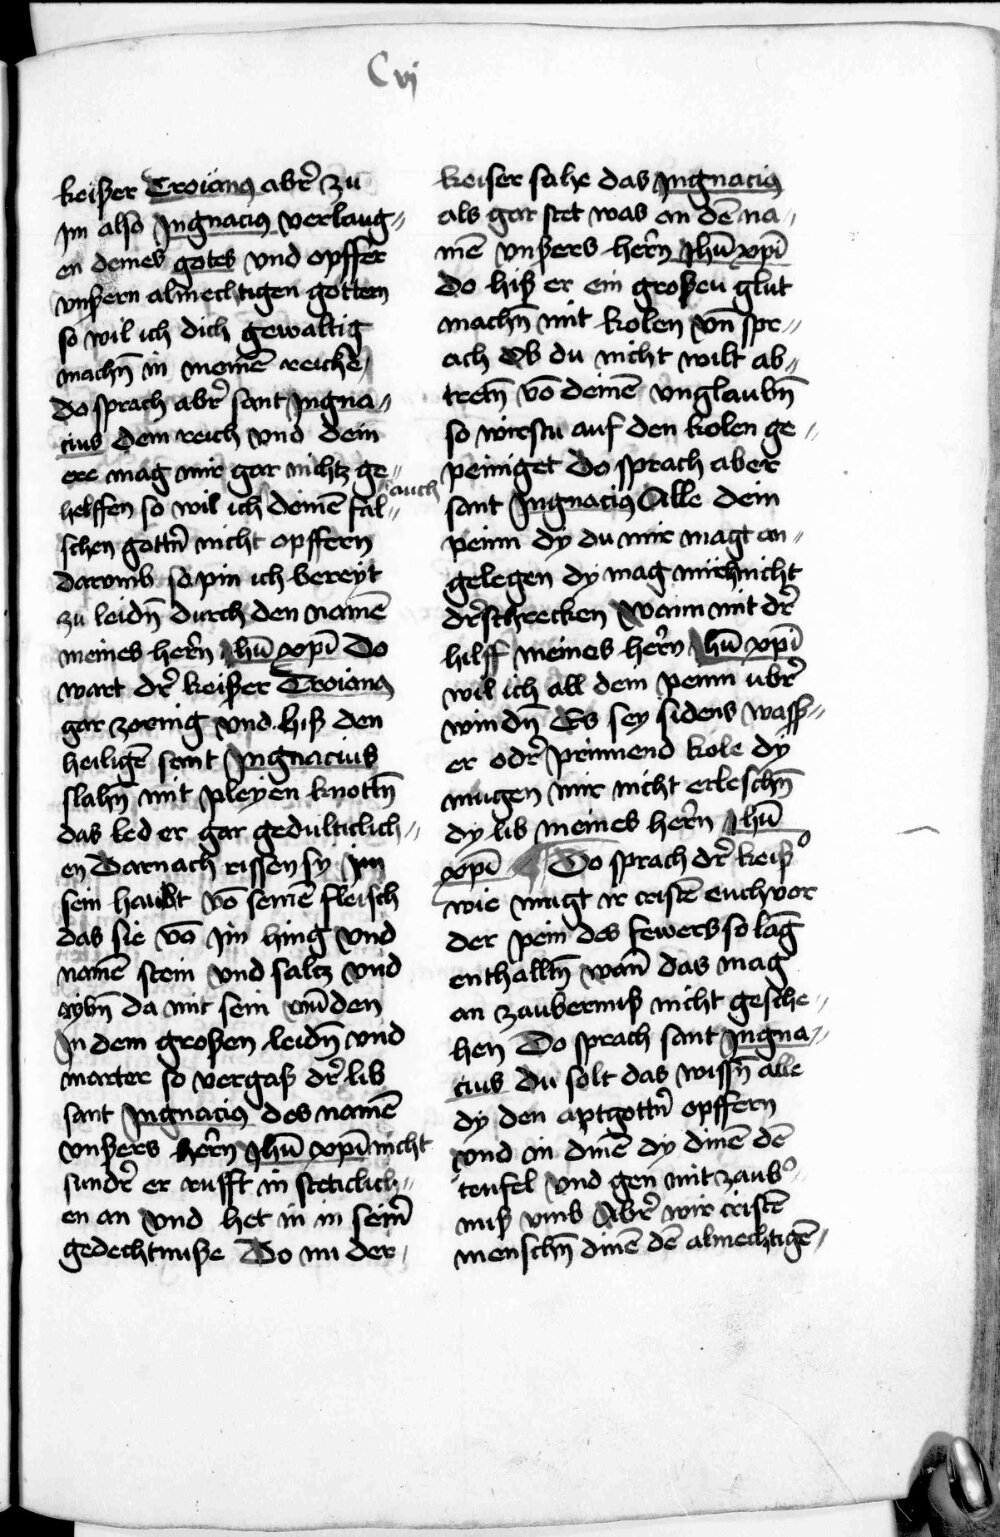 Cvj
keiszer Troianus abr̄ zu
jm also Ingnacius verlaug〃
en deines gotes vnd opffer
vnszern almechtigen gottern
so wil ich dich gewaltig
machn̄ in meinē reiche
do sprach abr̄ sant Ingna〃
cius dem reich vnd dein
ere mag mir gar nichtz ge〃
helffen so wil ich auch deinē fal〃
schen gottn̄ nicht opffern
darvmb so pin ich bereyt
zu leidn̄ durch den namē
meines her̄n Jhū xp̄i Do
wart dr̄ keiszer Troianus
gar zornig vnd hisz den
heiligē sant Ingnacius
slahn̄ mit pleyen knottn̄
das led er gar gedulticlich〃
en Darnach rissen sy jm
sein haudt vō seinē fleisch
das sie vō jm hing vnd
namē stein vnd saltz vnd
rybn̄ da mit sein wūden
In dem groszen leidn̄ vnd
marter so vergasz dr̄ lib
sant Ingnacius des namē
vnszers her̄n Jhū xp̄i nicht
sundr̄ er rufft in steticlich〃
en an vnd het in in seim̄
gedechtnusze Do nu der
keiser sahe das Ingnacius
als gar stet was an dē na〃
mē vnszers her̄n Jhū xp̄i
do hisz er ein groszen glut
machn̄ mit kolen vn̄ spr〃
ach Ob du nicht wilt ab〃
tretn̄ vō deinē vnglaubn̄
so wirstu auf den kolen ge〃
peiniget Do sprach aber
sant Ingnacius Alle dein
peinn dy du mir magt an〃
gelegen dy mag mich nicht
dr̄schrecken Wann mit dr̄
hilff meines her̄n Jhū xp̄i
wil ich all dein penn ubr̄
windn̄ Es sey sidens wass〃
er odr̄ prinnend kole dy
mugen mir nicht erleschn̄
dy lib meines her̄n Jhū
xp̄i Do sprach dr̄ keisz̉
wie mugt ir cristē euch vor
der pein des fewers so lāg
enthalltn̄ wan̄ das mag
an zaubernisz nicht gesche〃
hen Do sprach sant Ingna〃
cius Du solt das wissn̄ alle
dy den aptgottn̄ opffern
vnd in dinē dy dinē dē
teufel vnd gen mit zaub̉〃
nisz vmb Abr̄ wir cristē
menschn̄ dinē dē almechtigē〃